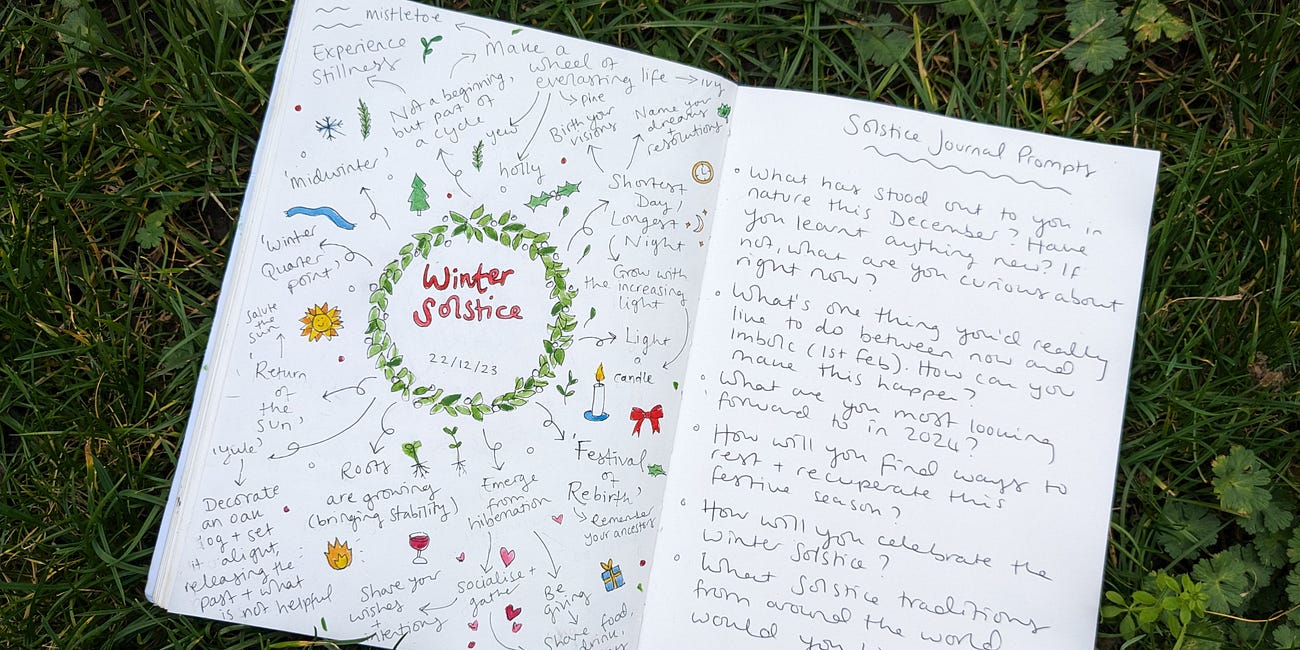 mistletoe
Experience
Stillness
Make a
wheel of
everlasting life
ivy
Not a beginning,
but part of
a cycle
yew
pine
holly
Birth your
visions
Name your
dreams +
resolutions
'midwinter'
Shortest
Day,
Longest
Night
'Winter
Quarter
point'
Grow with
the increasing
light
Winter
Solstice
22/12/23
salute
the
sun
Light
candle
'Return
of
the
Sun'
'Yule'
Decorate
an oak
log + set
it alight,
releasing the
past + what
is not helpful
Roots
are growing
(bringing stability)
Emerge
from
hibernation
'Festival
of
Rebirth'
Remember
your ancestors
Share your
wishes +
intentions
socialise +
gather
Be
giving
Share food,
drink,
Solstice Journal Prompts
• What has stood out to you in
nature this December? Have
you learnt anything new? If
not, what are you curious about
right now?
• What's one thing you'd really
like to do between now and
Imbolc (1st Feb). How can you
make this happen?
• What are you most looking
forward to in 2024?
• How will you find ways to
rest + recuperate this
festive season?
• How will you celebrate the
Winter Solstice?
• What Solstice traditions
from around the world
would you